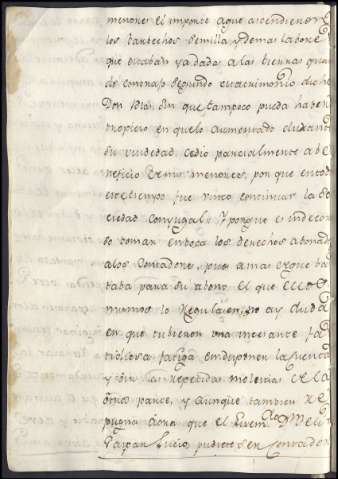 menores el importe aque ascendieron
los barbechos semilla y demas labores
que estaban ya dadas alas tierras quan
do contrajo segundo matrimonio dicho
Don sin que tampoco pueda haber
tropiezo en que lo aumentado durante
su viudedad cedio parcialmente a be
neficio de mis menores, por que en todo
este tiempo fue visto continuar la so
ciedad conyugal: Y porque es indecoro
so tomar en boca los derechos abonados
alos Contadores, pues amas de que bas
taba para su abono el que ellos
mismos lo regulasen, no ay duda
en que tubieron una incesante
fatiga en disponer la cuenta
y con las repetidas molestias de la
otra parte, y aunque tambien re
pugna
Gaspar Lucio pudiese ser Contador